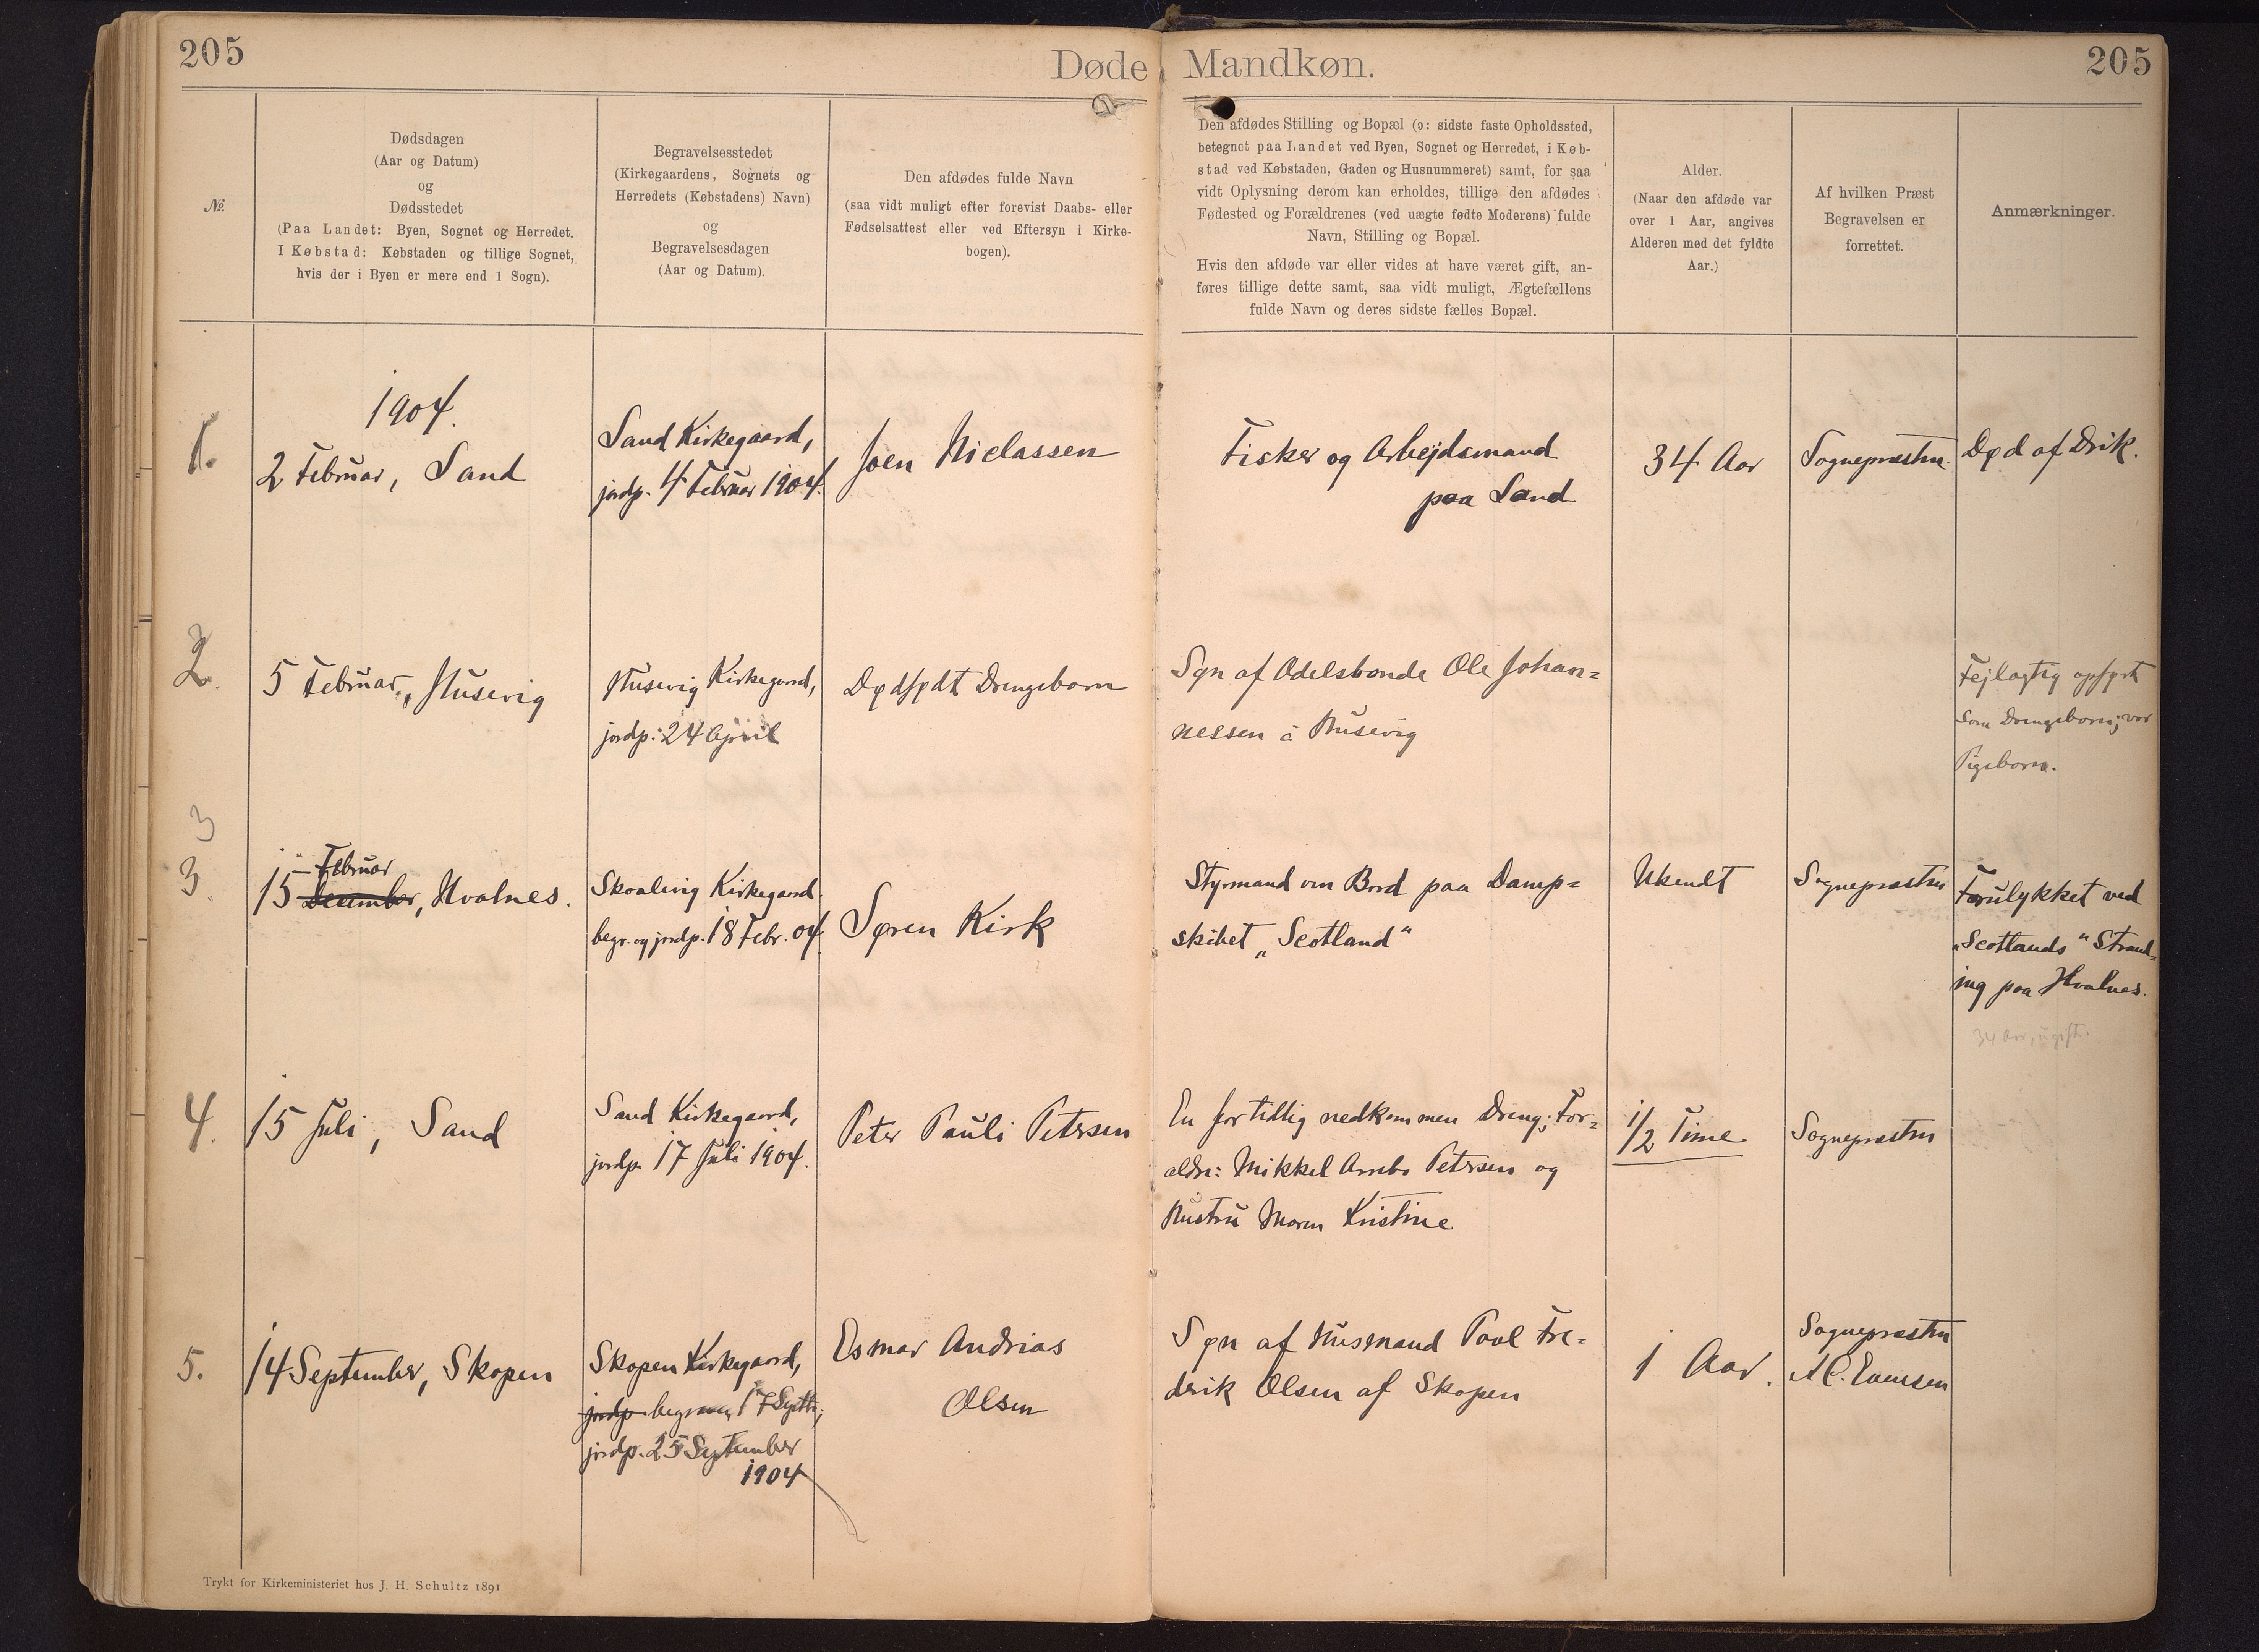 205
Døde Mandkøn.
205
№.
Dødsdagen
(Aar og Datum)
og
Dødsstedet
(Paa Landet: Byen, Sognet og Herredet.
I Købstad: Købstaden og tillige Sognet,
hvis der i Byen er mere end 1 Sogn).
Begravelsesstedet
(Kirkegaardens, Sognets og
Herredets (Købstadens) Navn)
og
Begravelsesdagen
(Aar og Datum).
Den afdødes fulde Navn
(saa vidt muligt efter forevist Daabs- eller
Fødselsattest eller ved Eftersyn i Kirke-
bogen).
Den afdødes Stilling og Bopæl (ɔ: sidste faste Opholdssted,
betegnet paa Landet ved Byen, Sognet og Herredet, i Køb-
stad ved Købstaden, Gaden og Husnummeret) samt, for saa
vidt Oplysning derom kan erholdes, tillige den afdødes
Fødested og Forældrenes (ved uægte fødte Moderens) fulde
Navn, Stilling og Bopæl.
Hvis den afdøde var eller vides at have været gift, an-
føres tillige dette samt, saa vidt muligt, Ægtefællens
fulde Navn og deres sidste fælles Bopæl.
Alder.
(Naar den afdøde var
over 1 Aar, angives
Alderen med det fyldte
Aar.)
Af hvilken Præst
Begravelsen er
forrettet.
Anmærkninger.
1904.
1.
2 Februar, Sand
Sand Kirkegaard,
jordp. 4 Februar 1904.
Joen Niclassen
Fisker og Arbejdsmand
paa Sand
34 Aar
Sognepræsten.
Død af Drik.
2.
5 Februar, Husevig
Husevig Kirkegaard,
jordp: 24 April
Dødfødt Drengebarn
Søn af Odelsbonde Ole Johan=
nessen i Husevig
Fejlagtig opført
som Drengebarn; var
Pigebarn.
3
3.
Februar
15 December, Hvalnes.
Skaalevig Kirkegaard.
begr. og jordp. 18 Febr. 04
Søren Kirk
Styrmand om Bord paa Damp=
skibet „Scotland“
Ukendt
Sognepræsten
Forulykket ved
„Scotlands“ Strand=
ing paa Hvalnes.
34 Aar, ugift.
4.
15 Juli, Sand
Sand Kirkegaard,
jordp. 17 Juli 1904.
Peter Pauli Petersen
En for tidlig nedkommen Dreng; For=
ældre: Mikkel Arnbo Petersen og
Hustru Maren Kristine
1/2 Time
Sognepræsten
5.
14 September, Skopen
Skopen Kirkegaard,
jordp. begr. 17 Septb;
jordp. 25 September
1904
Esmar Andrias
Olsen
Søn af Husmand Poul Fre=
derik Olsen af Skopen
1 Aar.
Sognepræsten
A.C. Evensen
Trykt for Kirkeministeriet hos J. H. Schultz 1891